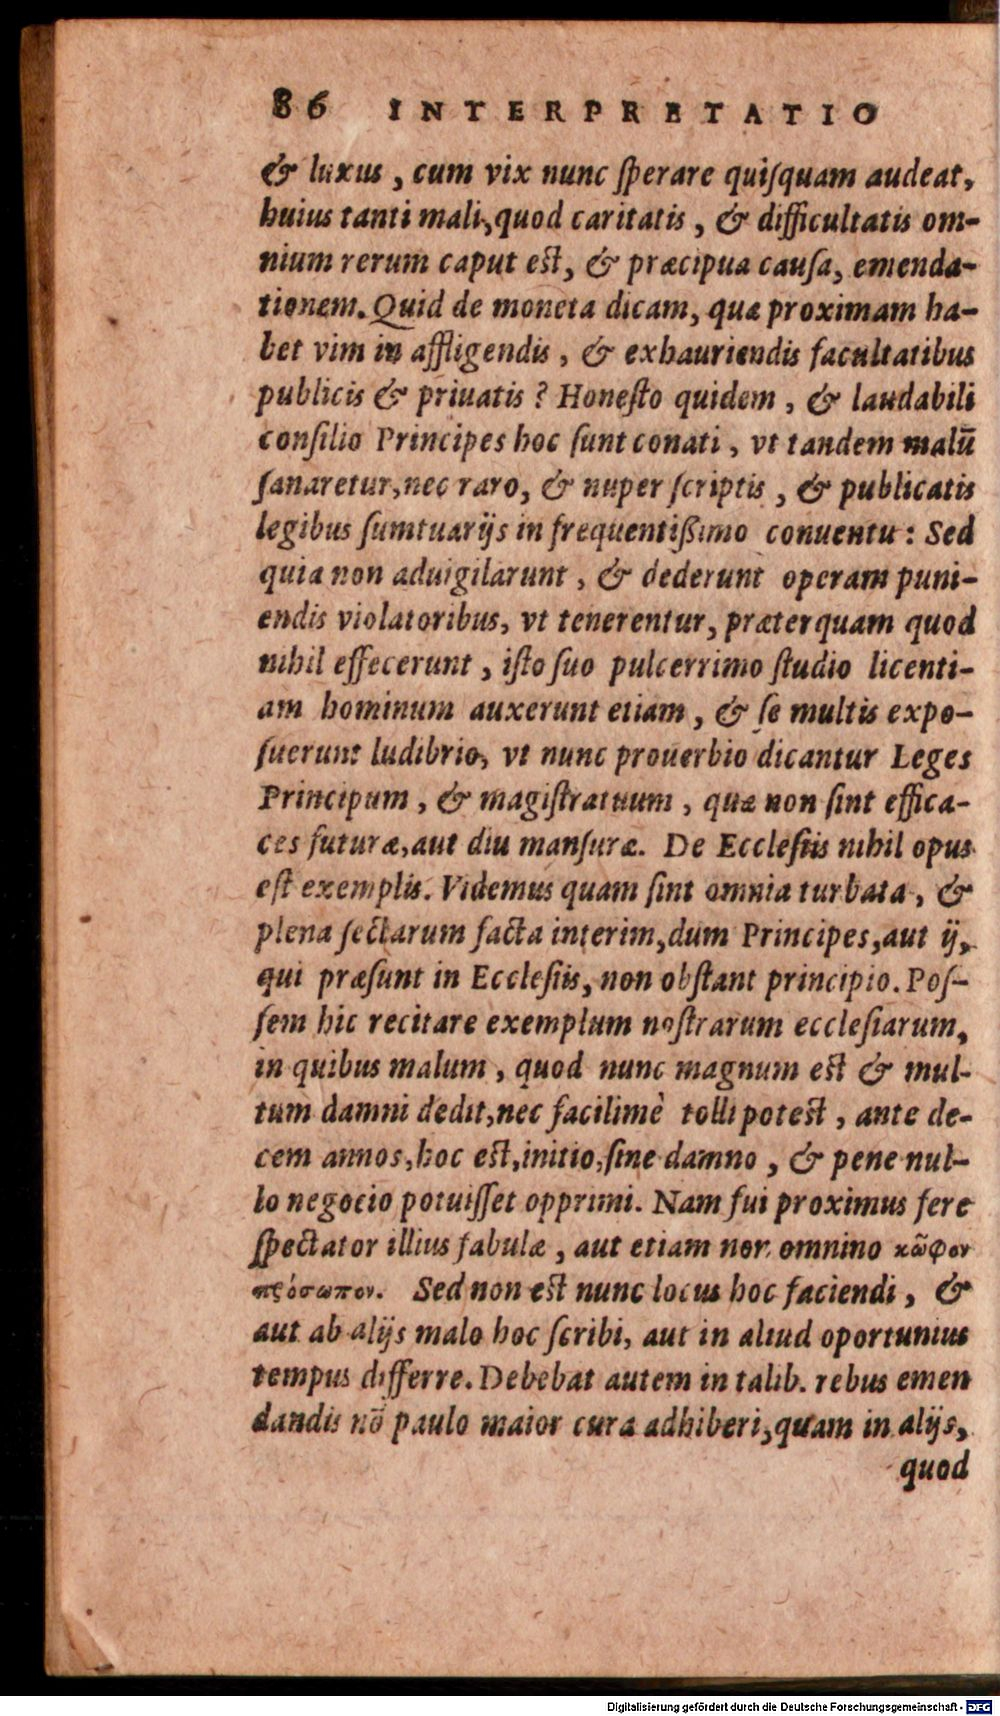 86 INTERPRETATIO
& luxus, cum vix nunc ſperare quiſquam audeat,
huius tanti mali, quod caritatis, & difficultatis om-
nium rerum caput eſt, & præcipua cauſa, emenda-
tionem. Quid de moneta dicam, quæ proximam ha-
bet vim in affligendis, & exhauriendis facultatibus
publicis & priuatis? Honeſto quidem, & laudabili
conſilio Principes hoc ſunt conati, vt tandem malū
ſanaretur, nec raro, & nuper ſcriptis, & publicatis
legibus ſumtuarijs in frequentißimo conuentu: Sed
quia non aduigilarunt, & dederunt operam puni-
endis violatoribus, vt tenerentur, præterquam quod
nihil effecerunt, iſto ſuo pulcerrimo ſtudio licenti-
am hominum auxerunt etiam, & ſe multis expo-
ſuerunt ludibrio, vt nunc prouerbio dicantur Leges
Principum, & magiſtratuum, quæ non ſint effica-
ces futuræ, aut diu manſuræ. De Eccleſiis nihil opus
eſt exemplis. Videmus quam ſint omnia turbata, &
plena ſectarum facta interim, dum Principes, aut ij,
qui præſunt in Eccleſiis, non obſtant principio. Poſ-
ſem hic recitare exemplum noſtrarum eccleſiarum,
in quibus malum, quod nunc magnum eſt & mul-
tum damni dedit, nec facilimè tolli poteſt, ante de-
cem annos, hoc eſt, initio, ſine damno, & pene nul-
lo negocio potuiſſet opprimi. Nam fui proximus fere
ſpectator illius fabulæ, aut etiam non omnino κῶφον
πρόσωπον. Sed non eſt nunc locus hoc faciendi, &
aut ab alijs malo hoc ſcribi, aut in aliud oportunius
tempus differre. Debebat autem in talib. rebus emen
dandis nō paulo maior cura adhiberi, quam in alijs,
quod
Digitalisierung gefördert durch die Deutsche Forschungsgemeinschaft - DFG